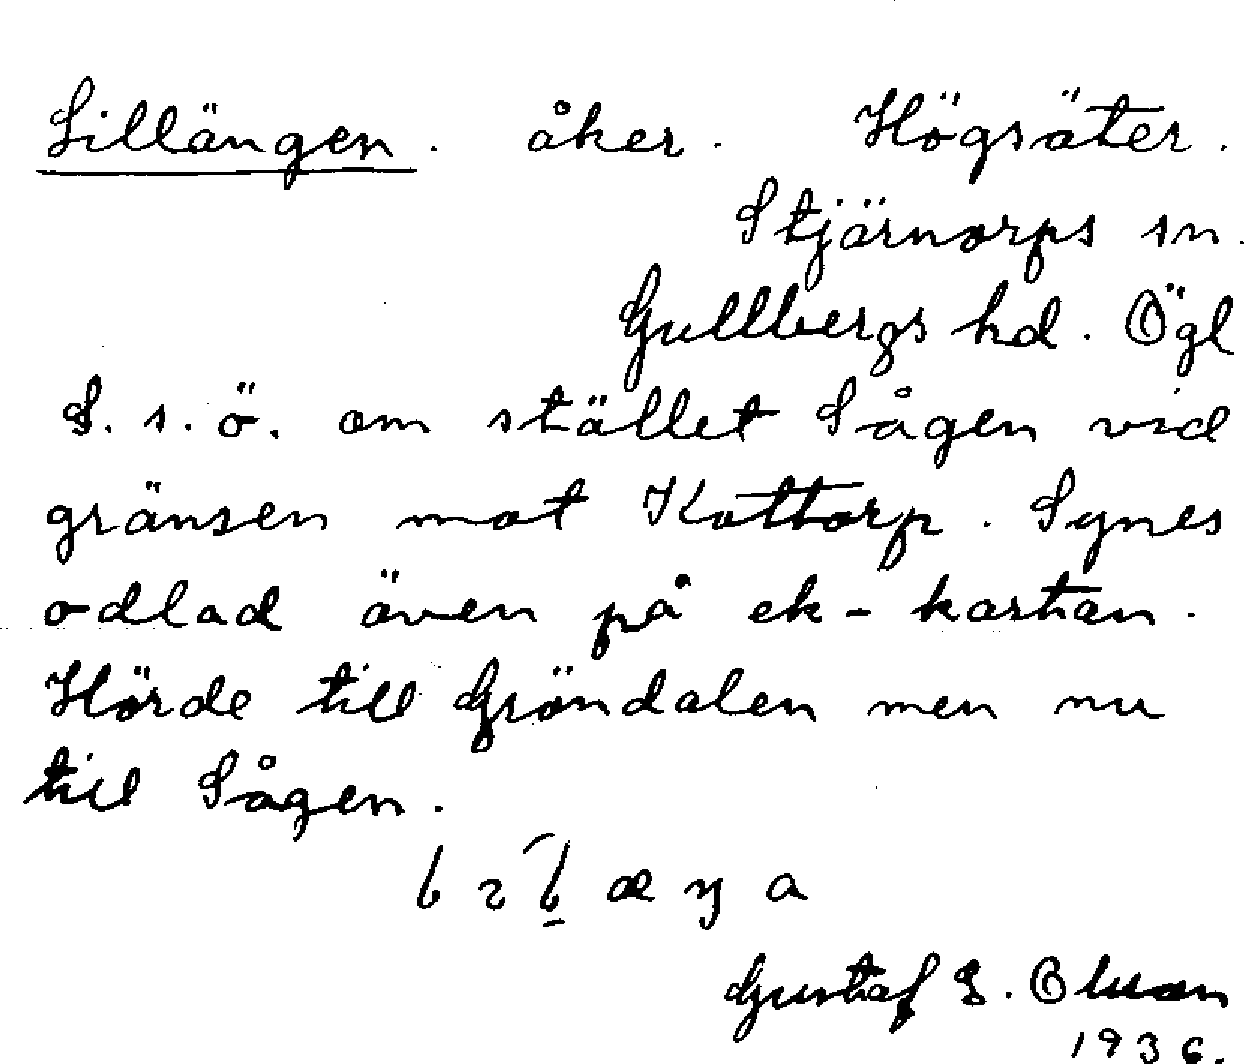 Lillängen. åker. Högsäter.
Stjärnorps sn.
Gullbergs hd. Ögl
S. s. ö. om stället Sågen vid
gränsen mot Kottorp. Synes
odlad även på ek-kartan.
Hörde till Gröndalen men nu
till Sågen.
Gustaf Olsson
1936.